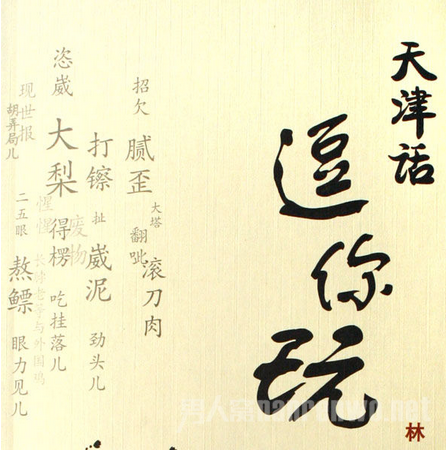 天津话
逗你玩
林
招欠
腻歪
大塔
翻呲
滚刀肉
打镲
扯
崴泥
劲头儿
废物
恣崴
大梨
得楞
吃挂落儿
惺惺
现世报
胡弄局儿
二五眼
熬鳔
眼力见儿